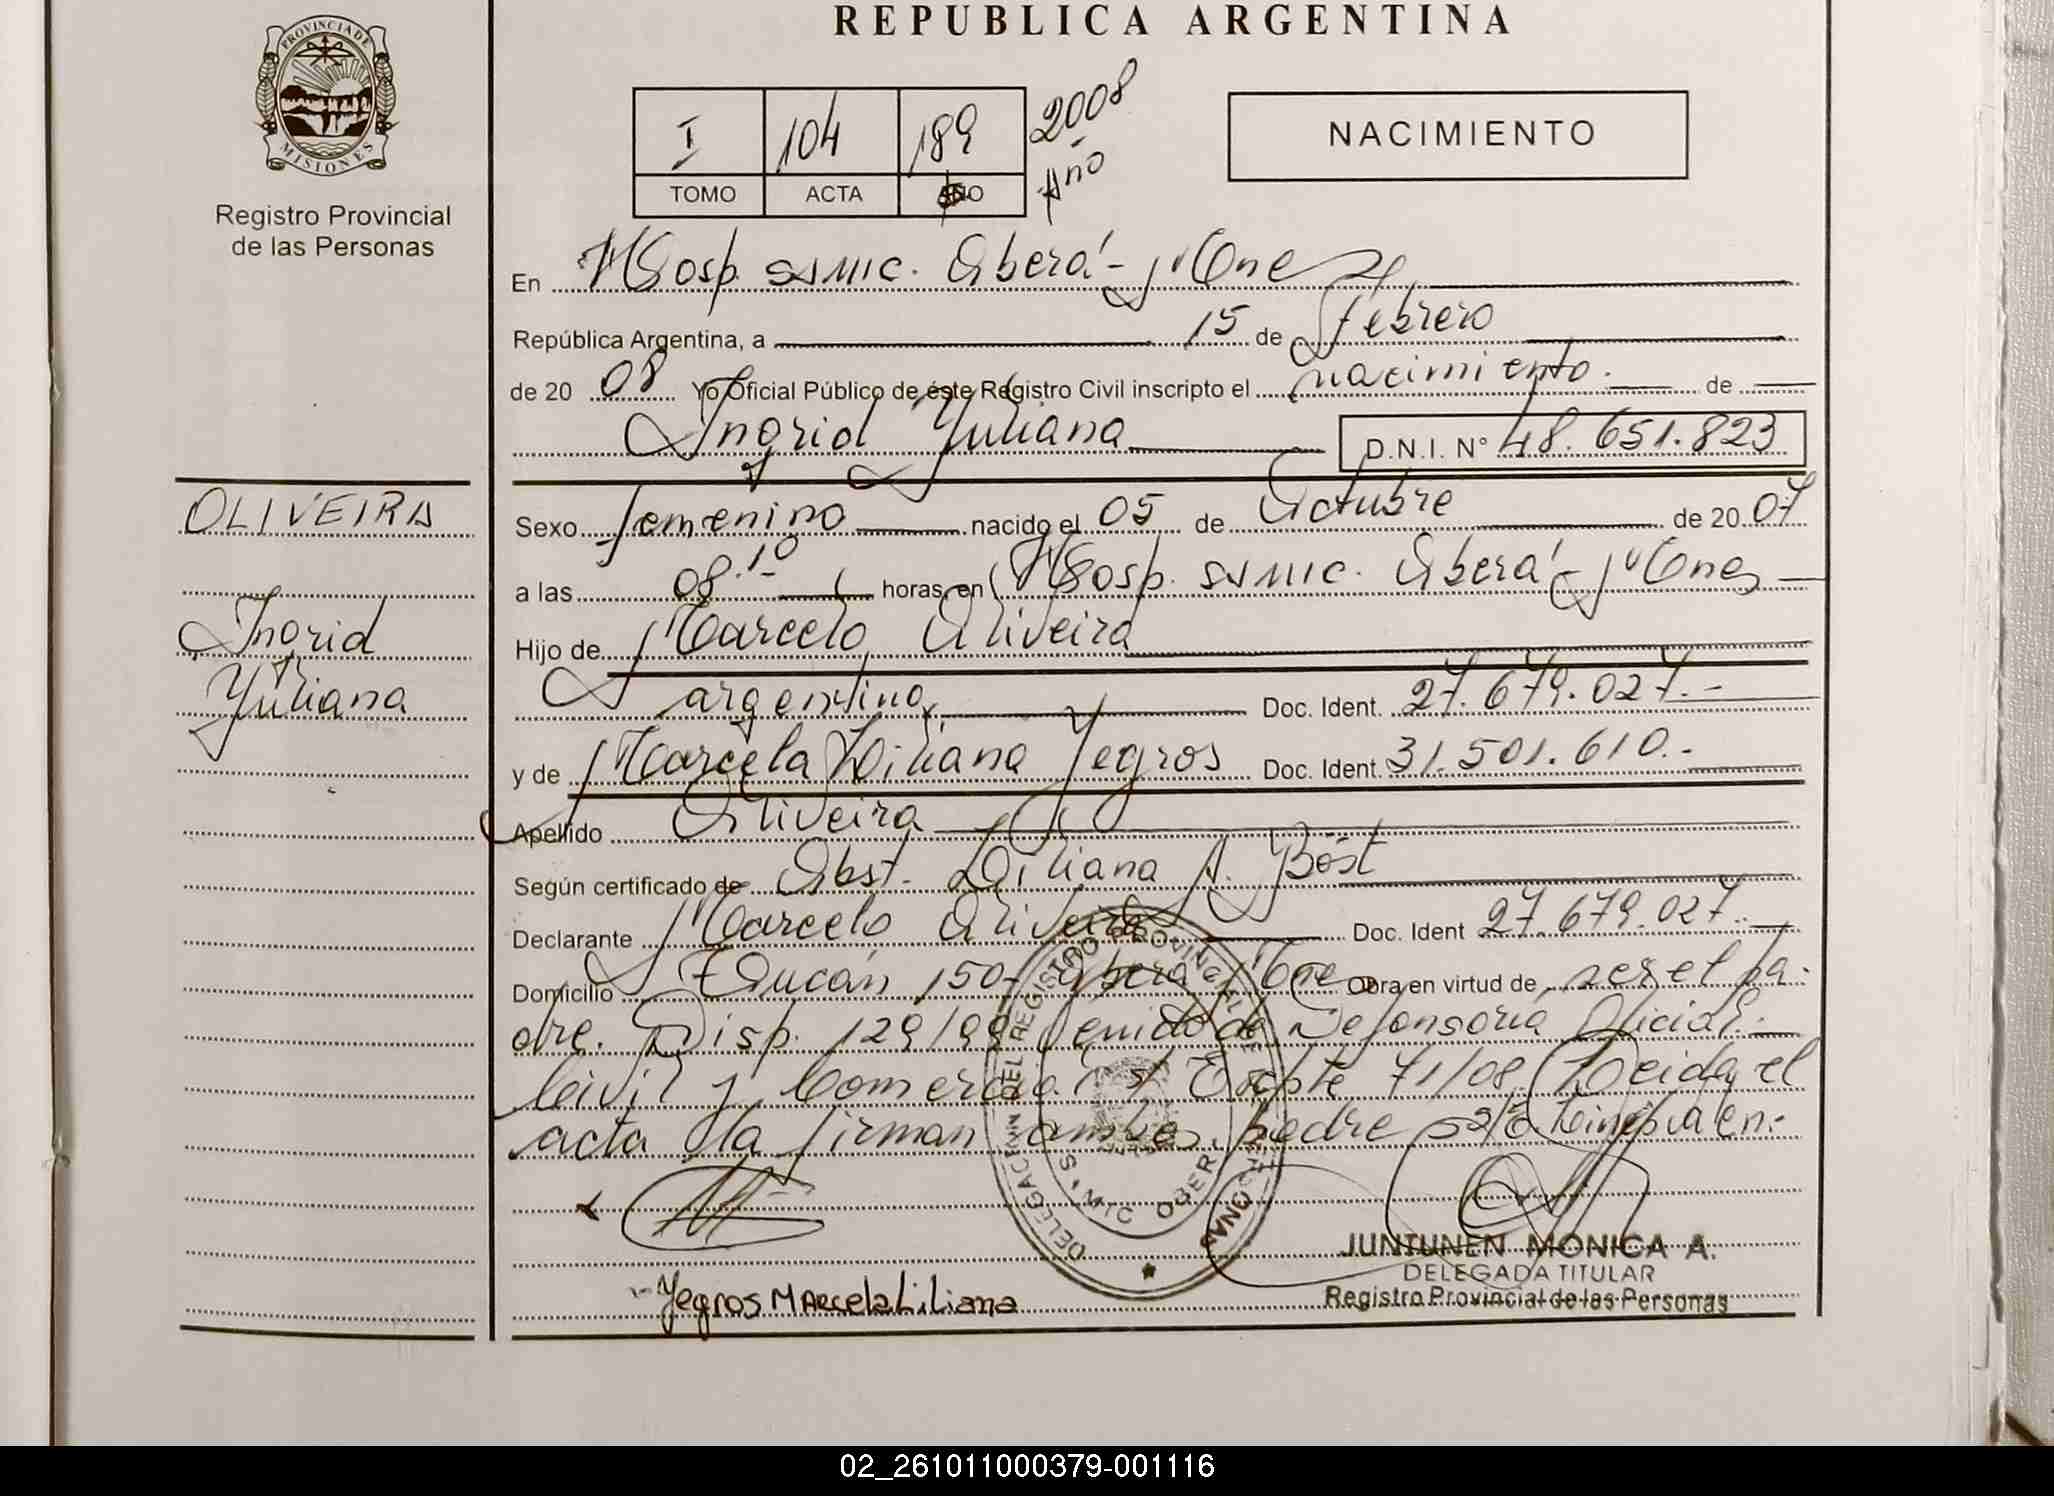 REPUBLICA ARGENTINA
PROVINCIA DE
MISIONES
Registro Provincial
de las Personas
I 104 189 2008
TOMO ACTA Año
NACIMIENTO
En Hosp. SAMIC. Oberá - Mnes
República Argentina, a 15 de Febrero
de 20 08 Yo Oficial Público de éste Registro Civil inscripto el nacimiento. de
Ingrid Yuliana D.N.I. N° 48.651.823
OLIVEIRA
Ingrid
Yuliana
Sexo femenino nacido el 05 de Octubre de 20 07
a las 08.10 horas, en Hosp. SAMIC. Oberá - Mnes
Hijo de Marcelo Oliveira
argentino, Doc. Ident. 27.679.027.-
y de Marcela Liliana Yegros Doc. Ident. 31.501.610.-
Apellido Oliveira
Según certificado de Obst. Liliana A. Böst
Declarante Marcelo Oliveira Doc. Ident 27.679.027.-
Domicilio 150- Oberá Mnes Obra en virtud de ser el pa-
dre. Disp. 129/99 Venido de Defensoría Oficial
Civil y Comercial s/ Expte 71/08. Leida el
acta la firman ambos padre
Yegros Marcela Liliana
DELEGACION DEL REGISTRO PROVINCIAL DE LAS PERSONAS
OBERA
JUNTUNEN MONICA A.
DELEGADA TITULAR
Registro Provincial de las Personas
02_261011000379-001116